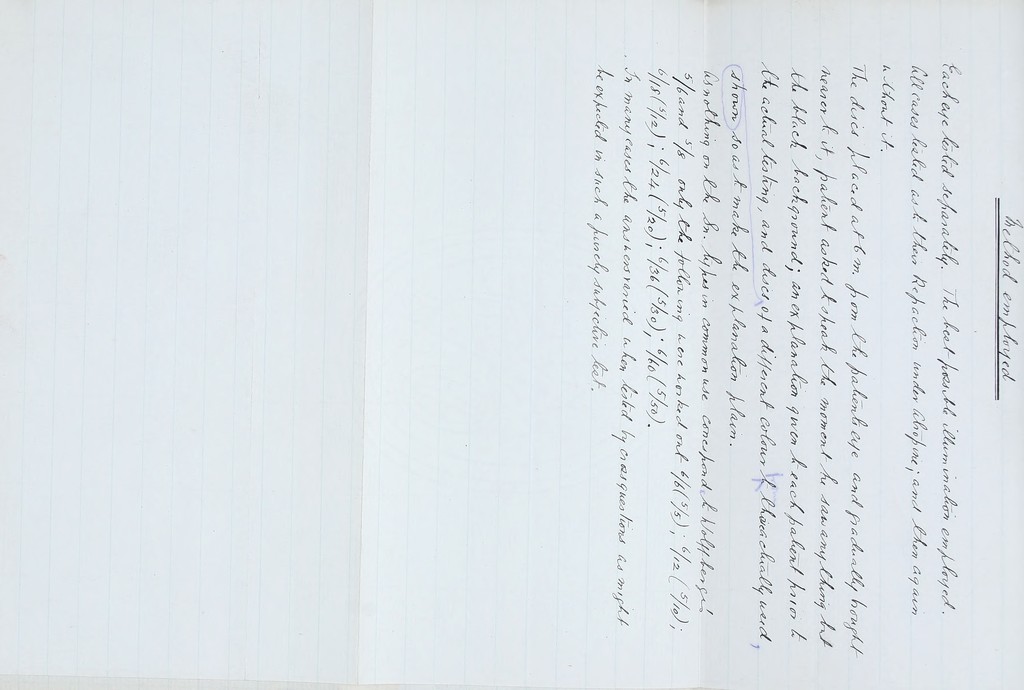 Method employed
Each eye tested separately. The best possible illumination employed.
All cases tested as to their Refraction under Atropine; and then again
without it.
The discs placed at 6 m. from the patients eye and gradually brought
nearer to it, patient asked to speak the moment he saw anything but
the black background; an explanation given to each patient prior to
the actual testing, and discs of a different colour to those actually used,
shown so as to make the explanation plain.
As nothing on the Sn. types in common use correspond to Wolffberg's
5/6 and 5/8 only the following were worked out 6/6 (5/5); 6/12 (5/10);
6/18 (5/12); 6/24 (5/20); 6/36 (5/30); 6/60 (5/50).
In many cases the answers varied when tested by cross questions as might
be expected in such a purely subjective test.